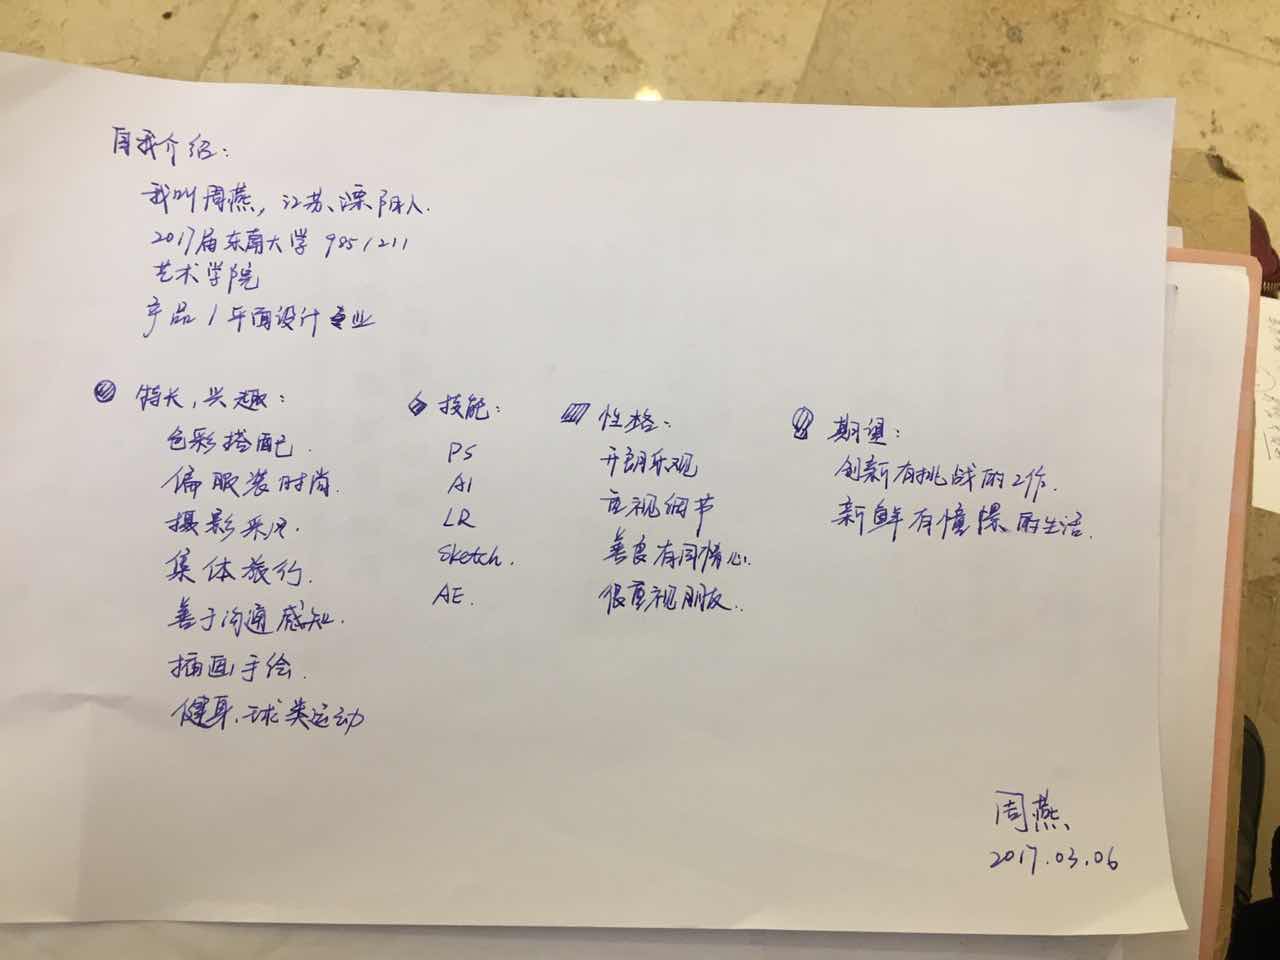 自我介绍：
我叫周燕，江苏溧阳人.
2017届东南大学 985/211
艺术学院
产品/平面设计专业
特长，兴趣：
色彩搭配.
偏服装时尚.
摄影采风.
集体旅行.
善于沟通感知.
插画手绘.
健身.球类运动
技能：
PS
AI
LR
Sketch.
AE.
性格：
开朗乐观
重视细节
善良有同情心.
很重视朋友.
期望：
创新有挑战的工作.
新鲜有憧憬的生活.
周燕
2017.03.06